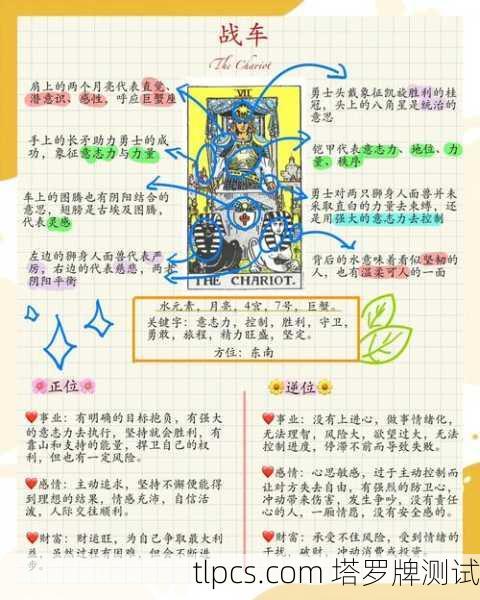 战车
The Chariot
肩上的两个月亮代表直觉、
潜意识、感性,呼应巨蟹座
手上的长矛助力勇士的成
功,象征意志力与力量
车上的图腾也有阴阳结合的
意思,翅膀是古埃及图腾,
代表灵感
左边的狮身人面兽代表严
厉,右边的代表慈悲,两者
阴阳平衡
VII
THE CHARIOT.
勇士头戴象征凯旋胜利的桂
冠,头上的八角星是统治的
意思
铠甲代表意志力、地位、力
量、秩序
勇士对两只狮身人面兽并未
采取直白的力量去束缚,还
是用强大的意志力去控制
背后的水意味着看似坚韧的
人,也有温柔可人的一面
水元素,月亮,4宫,7号,巨蟹。
关键字:意志力,控制,胜利,守卫,
勇敢,旅程,精力旺盛,坚定。
方位:东南
正位
事业:有明确的目标抱负,有强大
的意志力去执行,坚持就会胜利,有
靠山和支持的能量,捍卫自己的权
利,但也有一定风险。
感情:主动追求,坚持不懈便能得
到理想的结果,情感充沛,自信活
泼,人际交往顺利。
财富:财运旺,为自己争取最大利
益,虽然过程有困难,但会不断进
步。
逆位
事业:没有上进心,做事情绪化,
无法理智,风险大,欲望过大,无法
控制进度,停滞不前而导致失败。
感情:心思敏感,过于主动控制而
让对方失去自由,有强烈的防卫心,
冲动带来伤害,发生争吵,没有责任
心的人,一厢情愿,没有安全感的。
财富:承受不住风险,受到情绪的
干扰,破财,冲动消费或投资。
tlpcs.com 塔罗牌测试